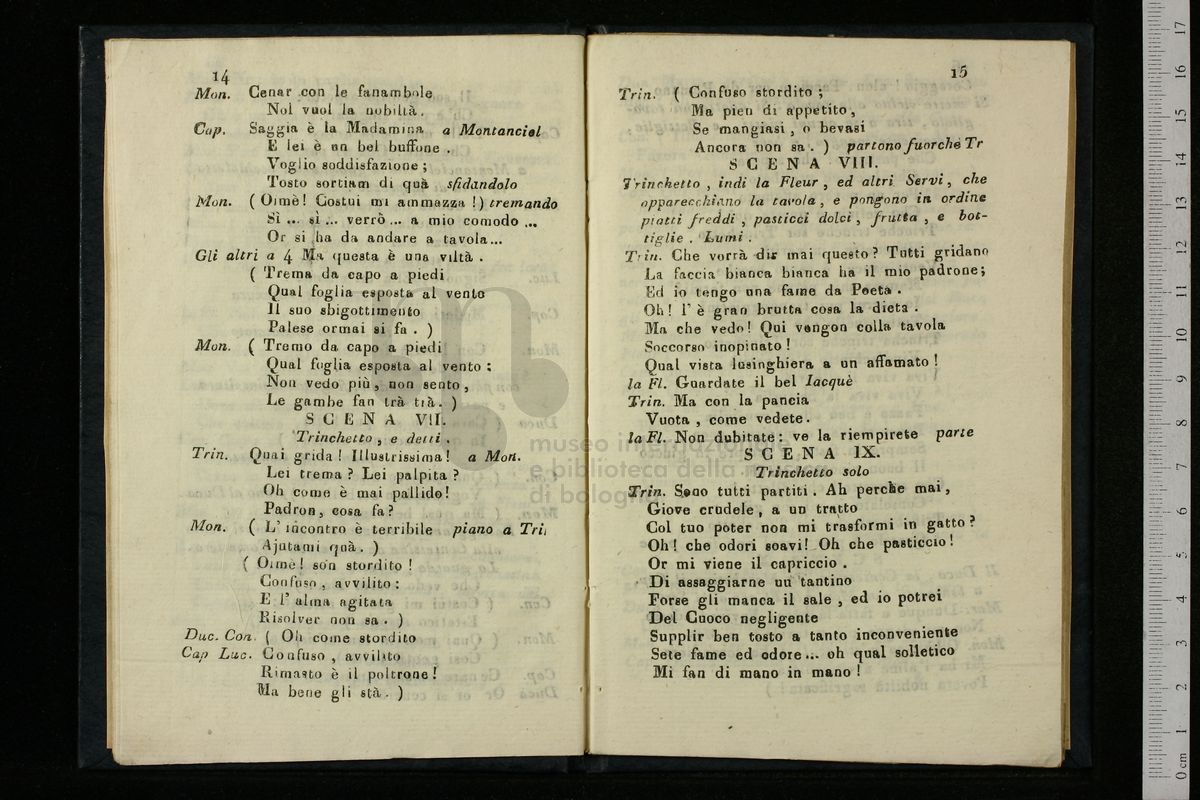 14
Mon. Cenar con le fanambole
Nol vuol la nobiltà.
Cap. Saggia è la Madamina a Montanciel
E lei è un bel buffone .
Voglio soddisfazione ;
Tosto sortiam di quà sfidandolo
Mon. ( Oimè! Costui mi ammazza !) tremando
Sì ... sì ... verrò ... a mio comodo ...
Or si ha da andare a tavola...
Gli altri a 4 Ma questa è una viltà .
( Trema da capo a piedi
Qual foglia esposta al vento
Il suo sbigottimento
Palese ormai si fa . )
Mon. ( Tremo da capo a piedi
Qual foglia esposta al vento :
Non vedo più, non sento,
Le gambe fan trà trà. )
SCENA VII.
Trinchetto, e detti .
Trin. Quai grida! Illustrissima! a Mon.
Lei trema ? Lei palpita ?
Oh come è mai pallido!
Padron, cosa fa?
Mon. ( L' incontro è terribile piano a Tri
Ajutami quà. )
( Oimè! son stordito !
Confuso, avvilito :
E l' alma agitata
Risolver non sa . )
Duc. Con. ( Oh come stordito
Cap Luc. Confuso , avvilito
Rimasto è il poltrone!
Ma bene gli stà. )
15
Trin. ( Confuso stordito ;
Ma pien di appetito,
Se mangiasi, o bevasi
Ancora non sa . ) partono fuorchè Tr
SCENA VIII.
Trinchetto , indi la Fleur, ed altri Servi, che
apparecchiano la tavola, e pongono in ordine
piatti freddi , pasticci dolci, frutta , e bot-
tiglie . Lumi .
Trin. Che vorrà dir mai questo? Tutti gridano
La faccia bianca bianca ha il mio padrone;
Ed io tengo una fame da Poeta .
Oh! l' è gran brutta cosa la dieta .
Ma che vedo! Qui vengon colla tavola
Soccorso inopinato !
Qual vista lusinghiera a un affamato !
la Fl. Guardate il bel lacquè
Trin. Ma con la pancia
Vuota , come vedete.
la Fl. Non dubitate: ve la riempirete parte
SCENA IX.
Trinchetto solo
Trin. Sono tutti partiti . Ah perchè mai,
Giove crudele, a un tratto
Col tuo poter non mi trasformi in gatto?
Oh! che odori soavi! Oh che pasticcio!
Or mi viene il capriccio .
Di assaggiarne un tantino
Forse gli manca il sale , ed io potrei
Del Cuoco negligente
Supplir ben tosto a tanto inconveniente
Sete fame ed odore... oh qual solletico
Mi fan di mano in mano !
museo internazionale
e biblioteca della musica
di bologna
0 cm 1 2 3 4 5 6 7 8 9 10 11 12 13 14 15 16 17